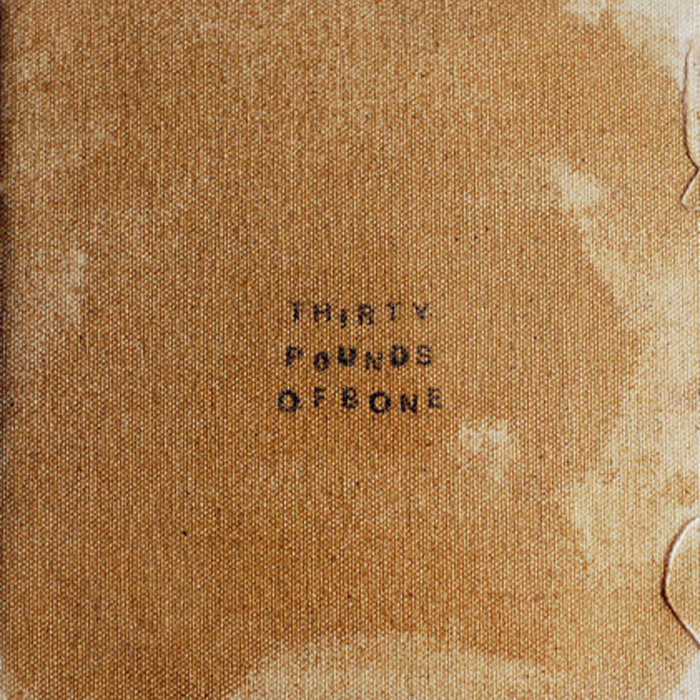 THiRTY
PoUNDS
OFBONE